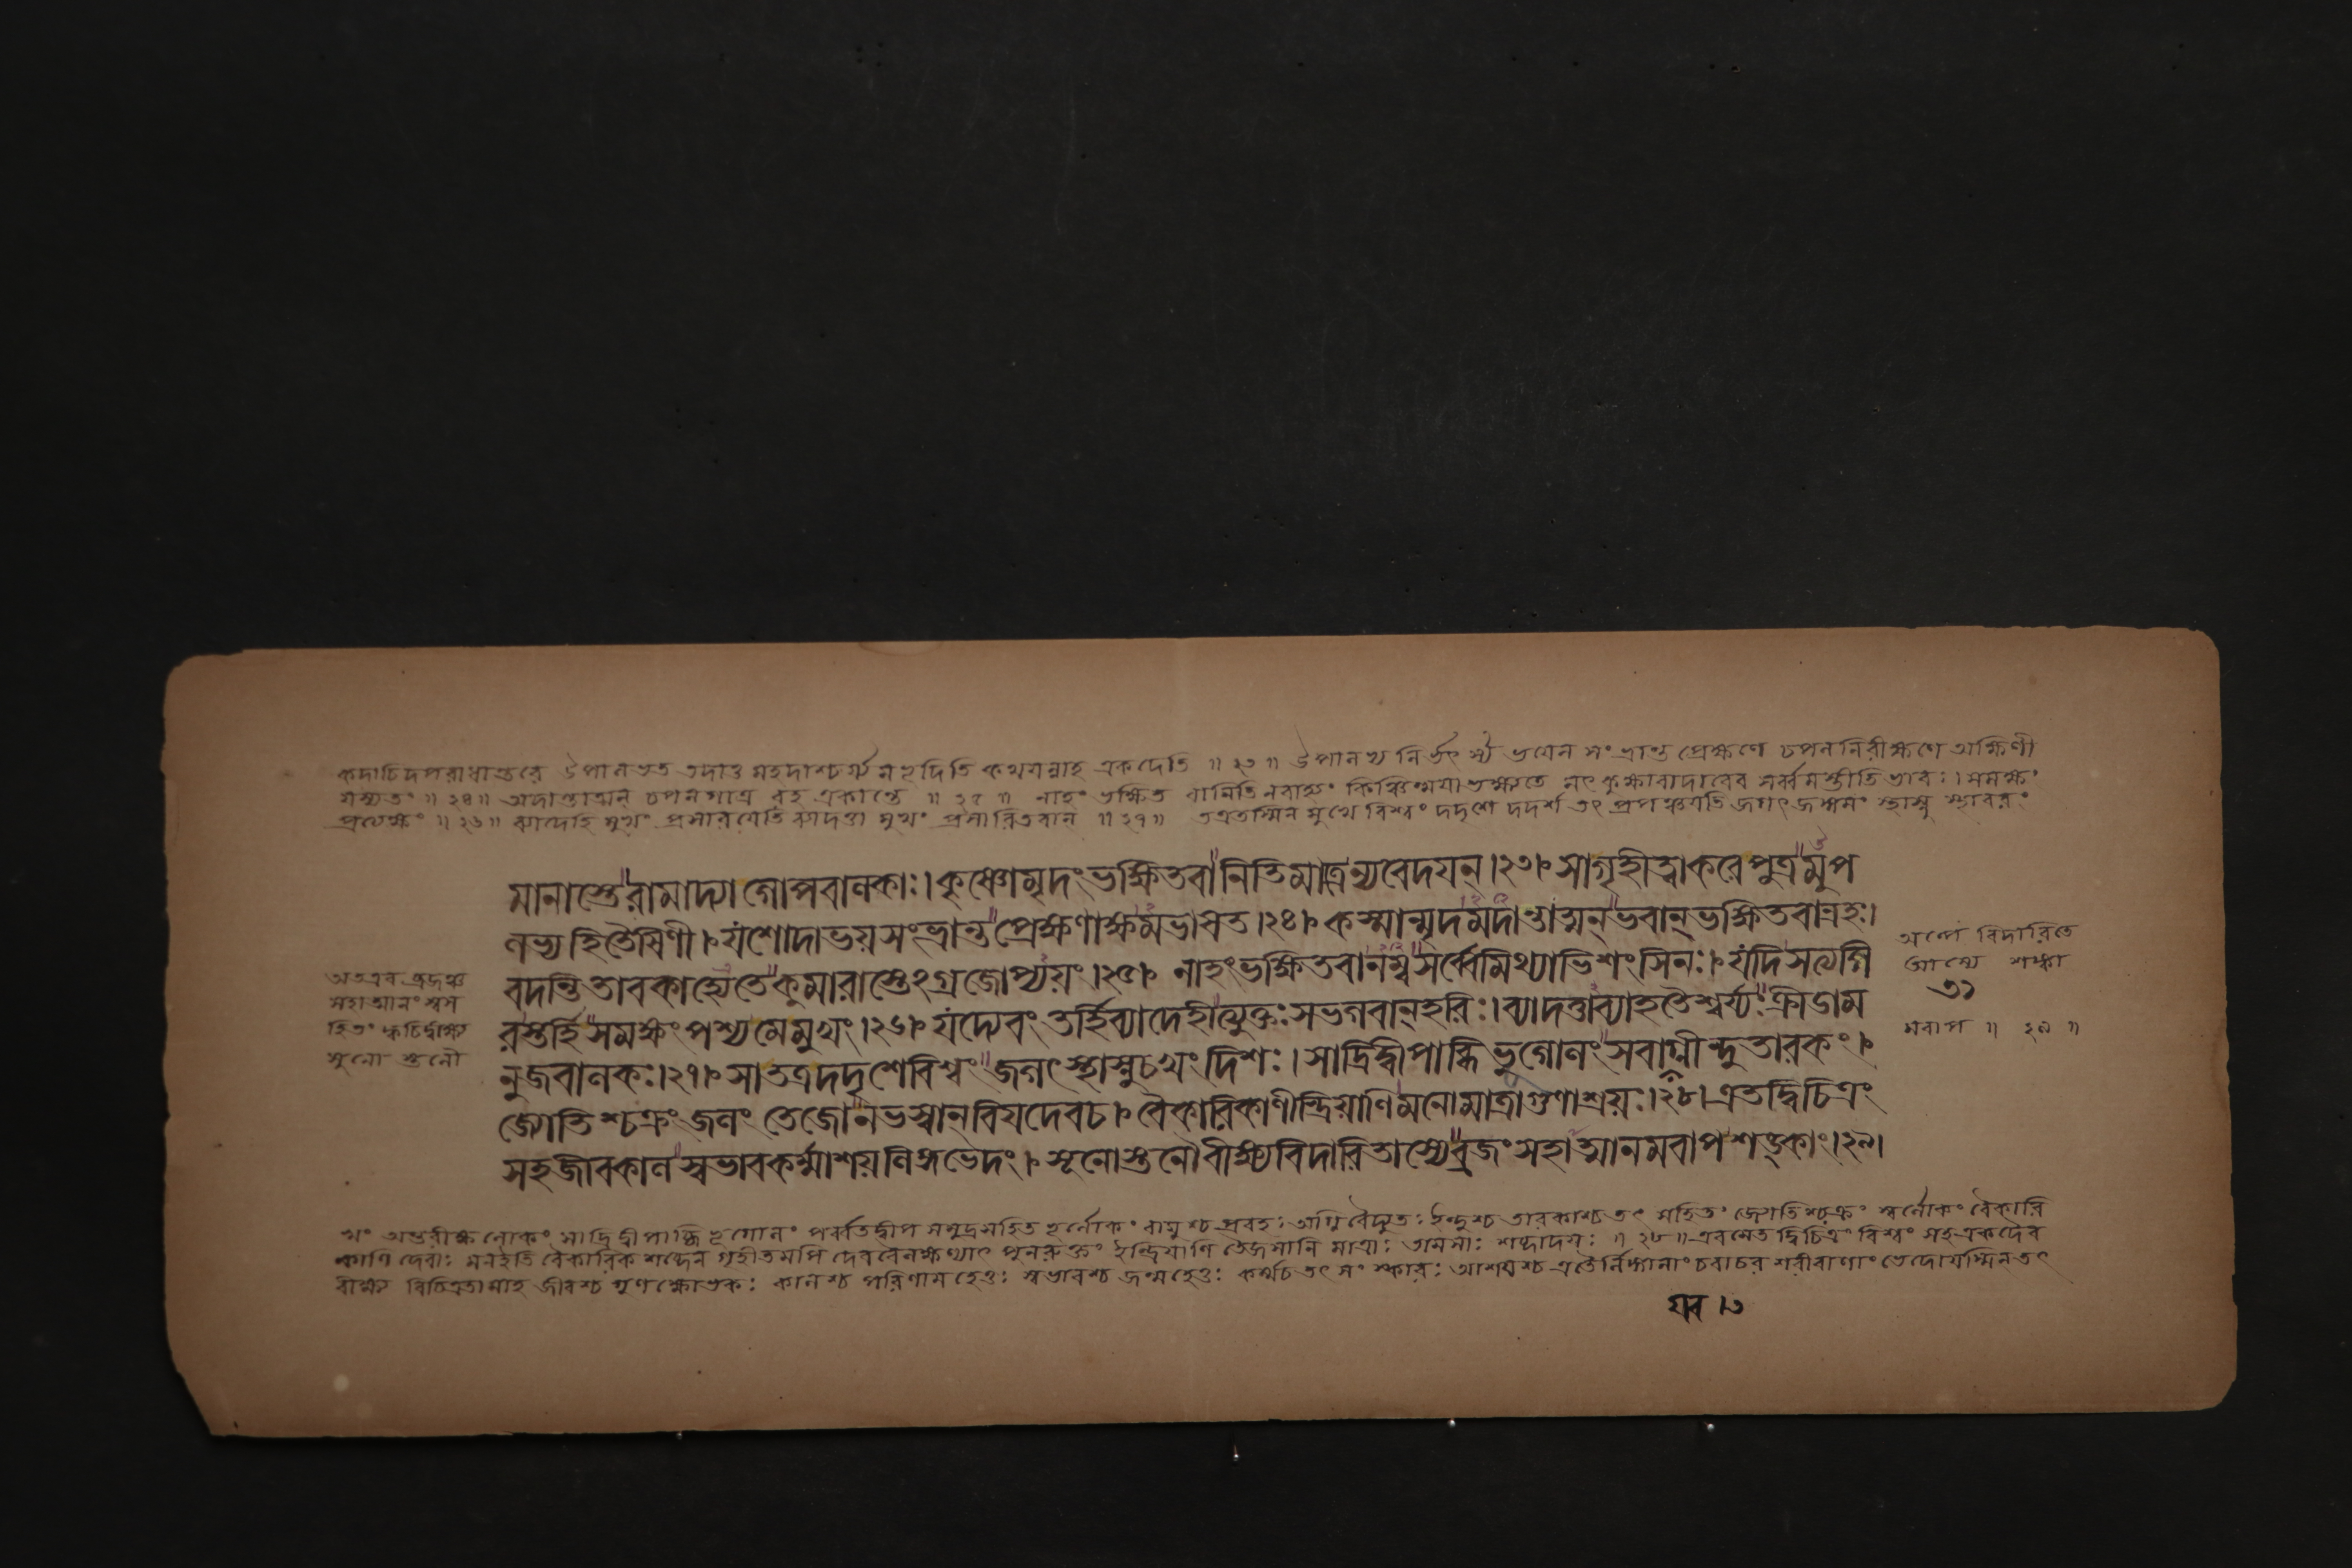 কদাচিদপরাধান্তরে উপালভত তদাতু মহদাশ্চর্য্যমভূদিতি কথযন্নাহ একদেতি ॥ ২৩ ॥ উপালভ্য নির্ভৎর্স্য ভযেন সংভ্রান্ত প্রেক্ষণে চপলনিরীক্ষণে অক্ষিণী
যস্যতং ॥ ২৪ ॥ অদান্তাত্মন্ চপলগাত্র রহ একান্তে ॥ ২৫ ॥ নাহং ভক্ষিত বানিতি নবাহ্যং কিঞ্চিন্ময়া ভক্ষ্যতে সৎ কুক্ষাবাদাবেব সর্ব্বমস্তীতি ভাবঃ। সমক্ষং
প্রত্যক্ষং ॥ ২৬ ॥ ব্যাদেহি মুখং প্রসারযেতি ব্যাদত্ত মুখং প্রসারিতবান্ ॥ ২৭ ॥ তত্রতস্মিন মুখে বিশ্বং দদৃশে দদর্শ তৎ প্রপঞ্চযতি জগৎ জঙ্গমং স্থাস্নু স্থাবরং
মানাস্তে রামাদ্যা গোপবালকাঃ। কৃষ্ণোমৃদং ভক্ষিতবানিতিমাত্রন্যবেদযন্। ২৩। সাগৃহীত্বাকরে পুত্রমুপ
লভ্য হিতৈষিণী। যশোদাভয়সংভ্রান্তপ্রেক্ষণাক্ষমভাষত। ২৪। কস্মান্মৃদমদান্তাত্মন্ ভবান্ ভক্ষিতবান্রহঃ।
বদন্তি তাবকাহ্যেতেকুমারাস্তেঽগ্রজোপ্যয়ং। ২৫। নাহংভক্ষিতবানম্ব সর্ব্বেমিথ্যাভিশংসিনঃ। যদিসত্যগি
রস্তর্হি সমক্ষং পশ্য মে মুখং। ২৬। যদ্যেবং তর্হিব্যাদেহীত্যুক্তঃ সভগবান্ হরিঃ। ব্যাদত্তাব্যাহতৈশ্বর্য্যঃ ক্রীডাম
নুজবালকঃ। ২৭। সাতত্রদদৃশেবিশ্বং জগৎ স্থাস্নুচখং দিশঃ। সাদ্রিদ্বীপাব্ধি ভূগোলং সবায়্বগ্নীন্দুতারকং।
জ্যোতিশ্চক্রং জলং তেজোনভস্বান্ বিযদেবচ। বৈকারিকাণীন্দ্রিয়াণি মনোমাত্রাগুণাশ্রয়ঃ। ২৮। এতদ্বিচিত্রং
সহজীবকাল স্বভাবকর্ম্মাশয়লিঙ্গভেদং। সূনোস্তনৌবীক্ষ্যবিদারিতাস্যেব্রজং সহাত্মানমবাপশঙ্কাং। ২৯।
অতএব ব্রজঞ্চ
সহাত্মানং স্বস
হিতং ক্বচিদ্বীক্ষ্য
সুনো স্তনৌ
বিদারিতে
আস্যে শঙ্কা
মবাপ ॥ ২৯ ॥
খং অন্তরীক্ষ লোকং সাদ্রি দ্বীপাব্ধি ভূগোলং পর্ব্বতদ্বীপ সমুদ্রসহিত ভূর্লোকং বায়ুশ্চ প্রবহঃ অগ্নি বৈদ্যুতঃ ইন্দুশ্চ তারকাশ্চ তৎ সহিতং জ্যোতিশ্চক্রং স্বর্লোকং বৈকারি
কাণি দেবাঃ মনইতি বৈকারিক শব্দেন গৃহীতমপি দেববৈলক্ষণ্যাৎ পুনরুক্তং ইন্দ্রিয়াণি তৈজসানি মাত্রাঃ তামসাঃ শব্দাদয়ঃ ॥ ২৮ ॥ এবমেত দ্বিচিত্রং বিশ্বং সহ একদৈব
বীক্ষ্য বিচিত্রতামাহ জীবশ্চ গুণক্ষোভকঃ কালশ্চ পরিণাম হেতুঃ স্বভাবশ্চ জন্মহেতুঃ কর্ম্মচ তৎ সংস্কারঃ আশয়শ্চ এতৈর্লিঙ্গানাং চরাচর শরীরাণাং ভেদোযস্মিন তৎ